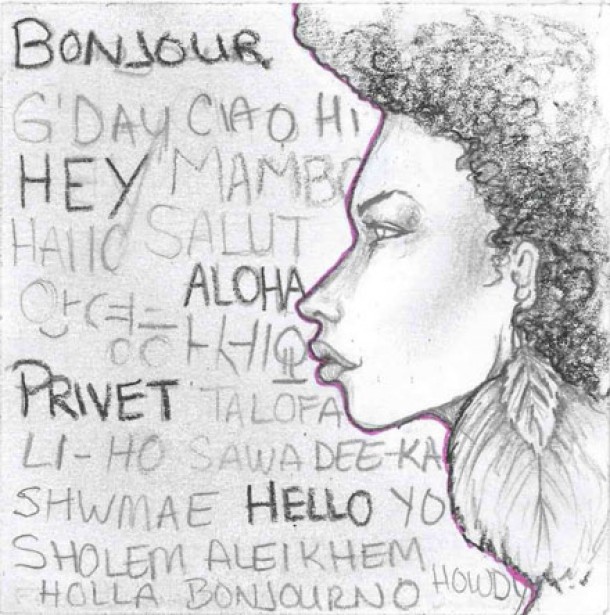 BONJOUR
G'DAY CIAO HI
HEY MAMBO
HAllO SALUT
ALOHA
PRIVET TALOFA
LI-HO SAWADEE-KA
SHWMAE HELLO YO
SHOLEM ALEIKHEM
HOLLA BONJOURNO HOWDY